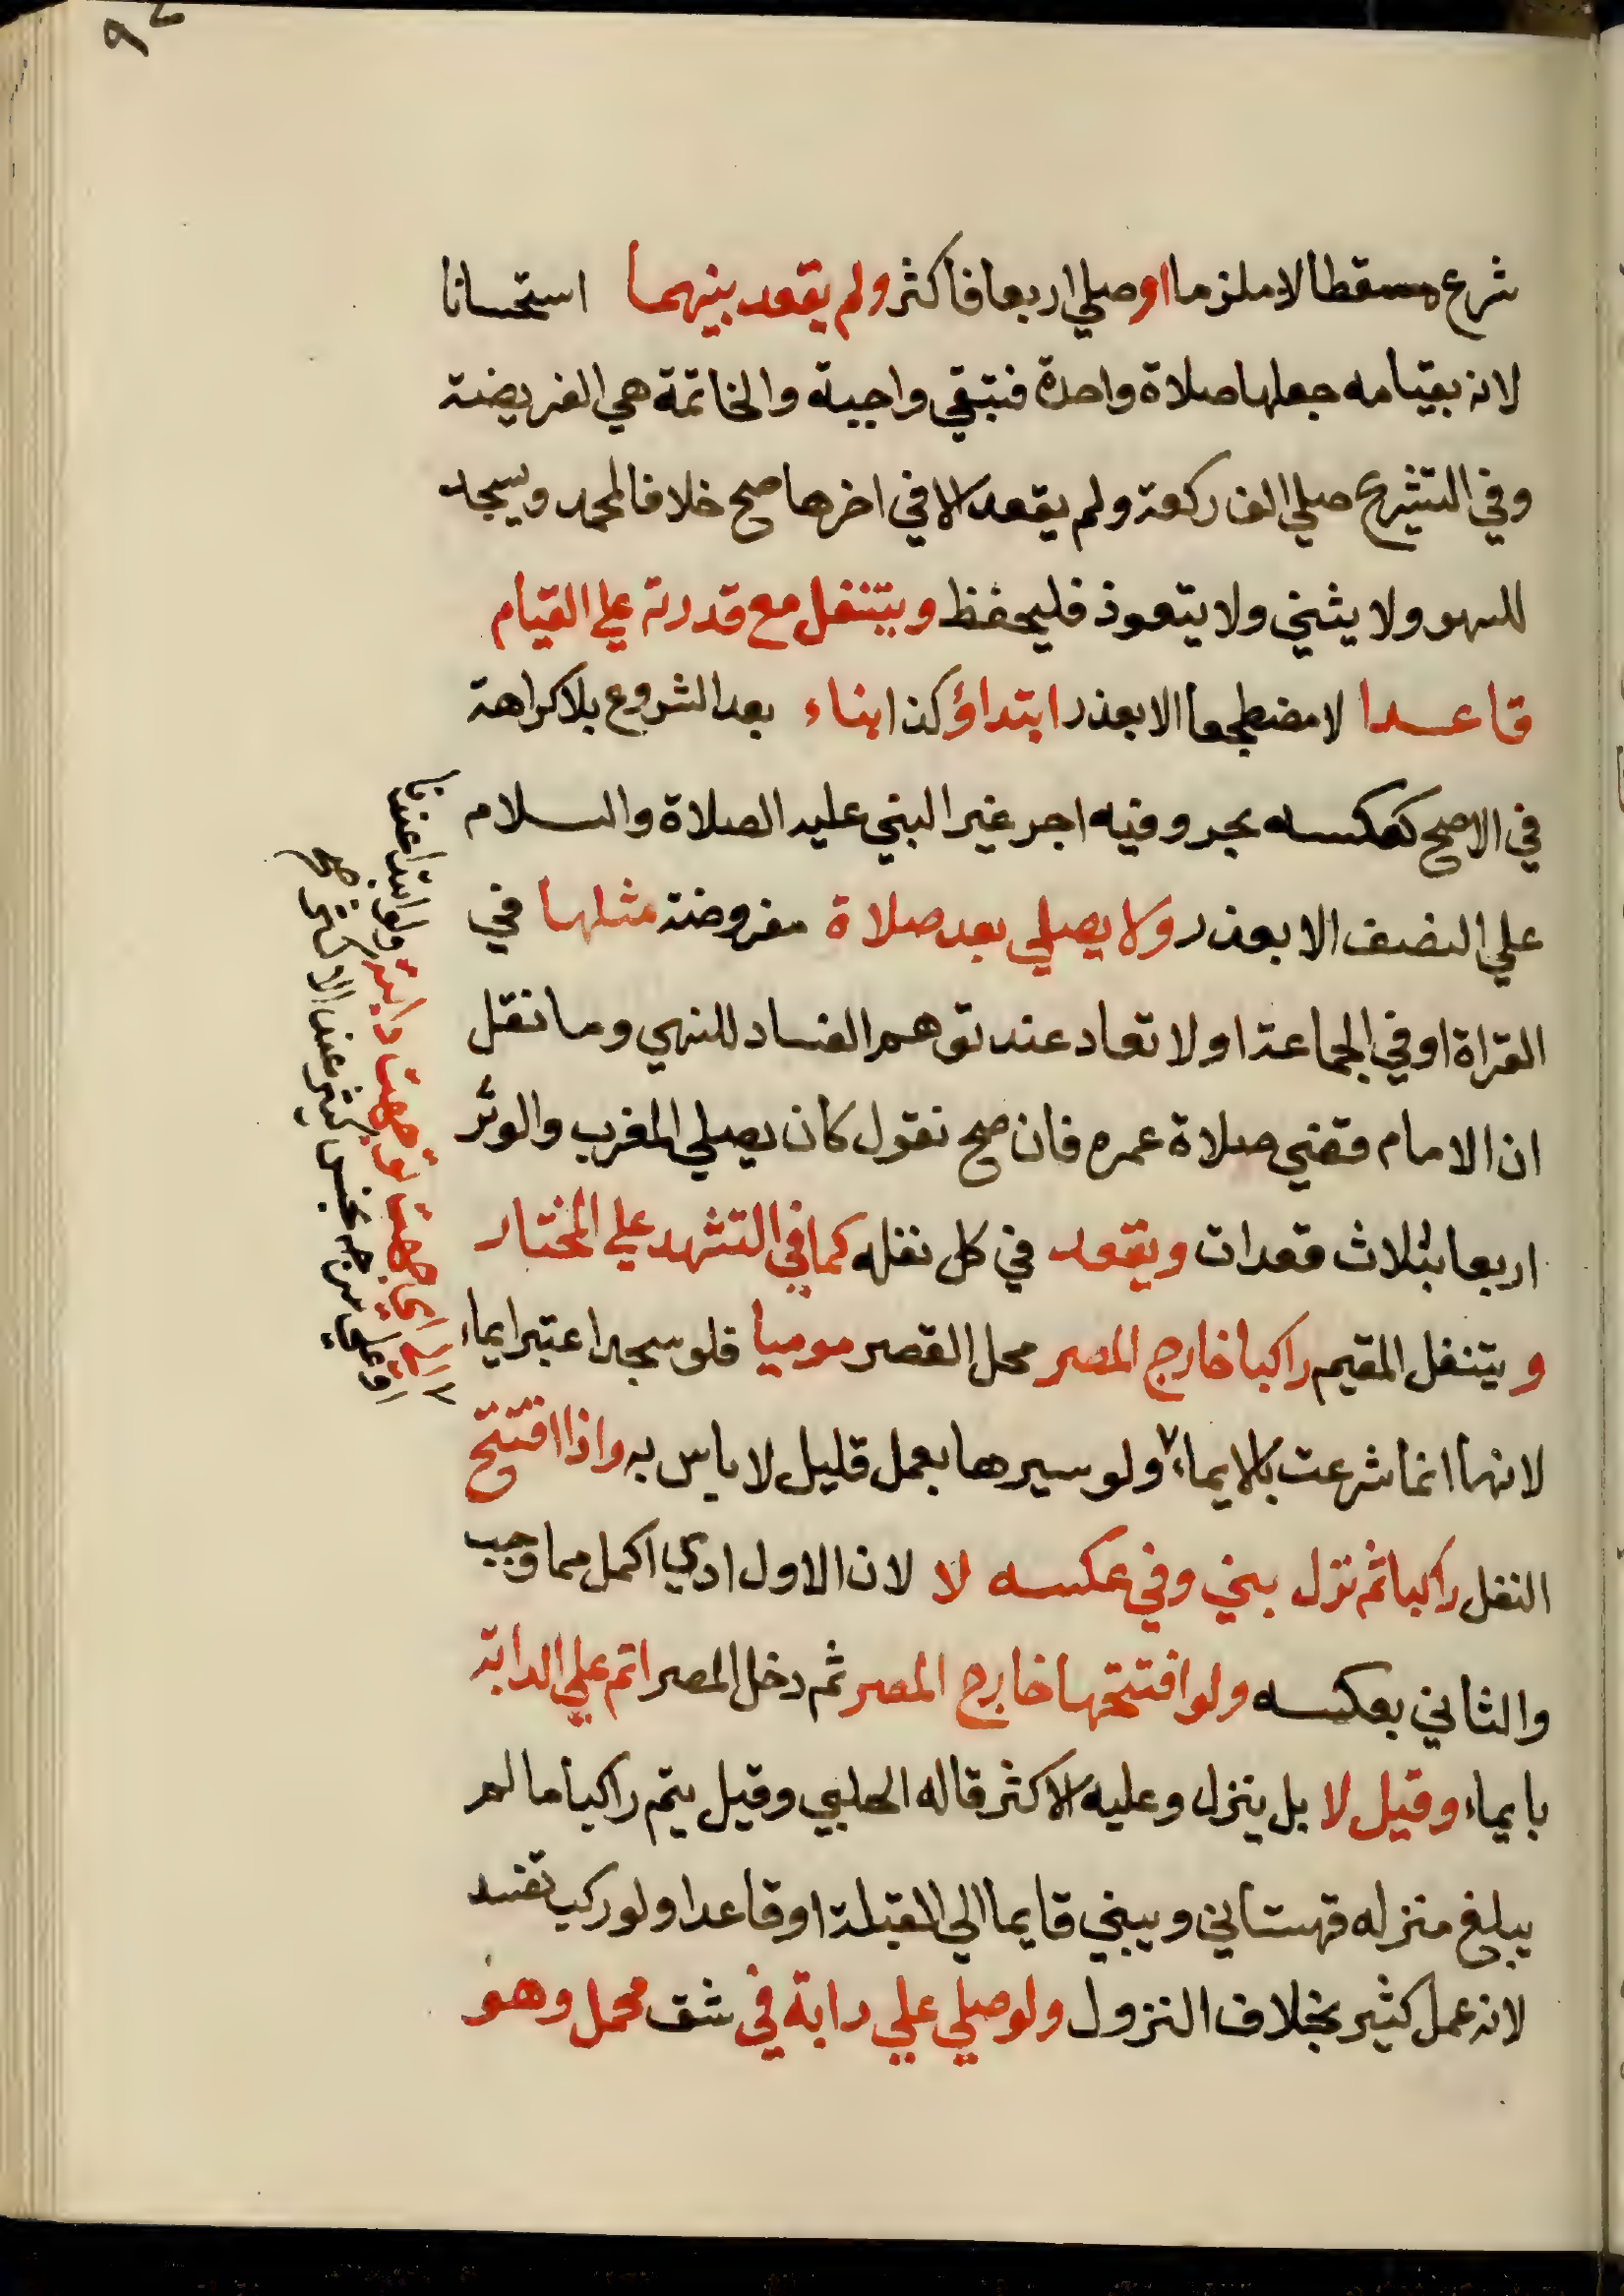 شرع مسقطا لا ملزما او صلي اربعا فاكثر ولم يقعد بينهما استحسانا
لانه بقيامه جعلها صلاة واحدة فتبقي واجبة والخاتمة هي الفريضة
وفي التشريح صلي الف ركعة ولم يقعد الا في اخرها صح خلافا لمحمد ويسجد
للسهو ولا يثني ولا يتعوذ فليحفظ ويتنفل مع قدرته علي القيام
قاعدا لا مضطجعا الا بعذر ابتداؤ كذا بناء بعد الشروع بلا كراهة
في الاصح كعكسه بحر وفيه اجر غير النبي عليه الصلاة والسلام
علي النصف الا بعذر ولا يصلي بعد صلاة مفروضة مثلها في
القراة او في الجماعة او لا تعاد عند توهم الفساد للنهي وما نقل
ان الامام قضي صلاة عمره فان صح نقول كان يصلي المغرب والوتر
اربعا بثلاث قعدات ويقعد في كل نفله كما في التشهد علي المختار
و يتنفل المقيم راكبا خارج المصر محل القصر موميا فلو سجد اعتبر ايماء
لانها انما شرعت بالايماء ٧ ولو سيرها بعمل قليل لا باس به واذا افتتح
النفل راكبا ثم نزل بني وفي عكسه لا لان الاول ادي اكمل مما وجب
والثاني بعكسه ولو افتتحها خارج المصر ثم دخل المصر اتم علي الدابة
بايماء وقيل لا بل ينزل وعليه الاكثر قاله الحلبي وقيل يتم راكبا ما لم
يبلغ منزله قهستاني ويبني قايما الي القبلة او قاعدا ولو ركب تفسد
لانه عمل كثير بخلاف النزول ولو صلي علي دابة في شق محمل وهو
٧ الي اي جهة توجهت دابته ولو ابتدا عندنا
او علي سرجه نجس كثير عند الاكثر صح